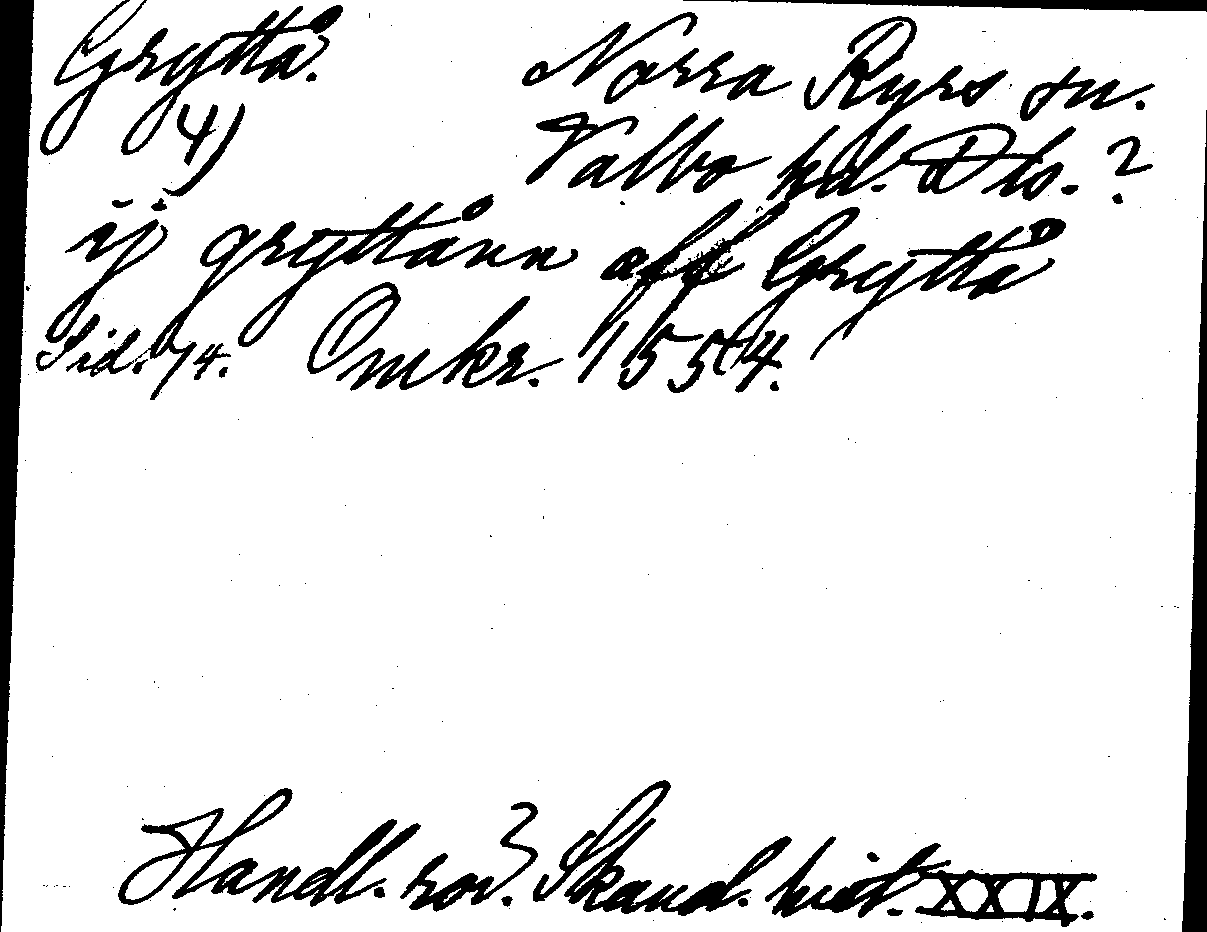 Gryttå. Norra Ryrs sn.
4) Valbo hd. Dls. ?
ij gryttånn aff Gryttå
Sid. 74. Omkr. 1554.
Handl. rör. Skand. hist. XXIX.